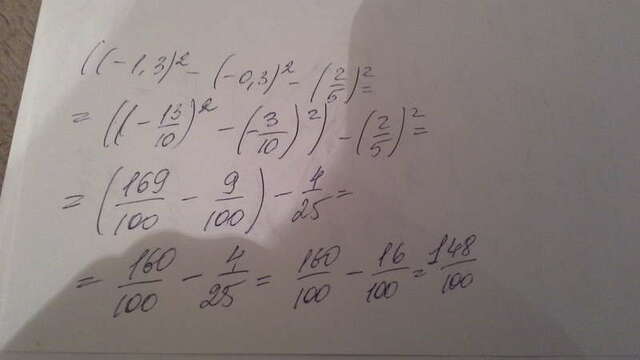 ((-1,3)² - (-0,3)² - (2/5)² =
= ((-13/10)² - (-3/10)²) - (2/5)² =
= (169/100 - 9/100) - 4/25 =
= 160/100 - 4/25 = 160/100 - 16/100 = 148/100